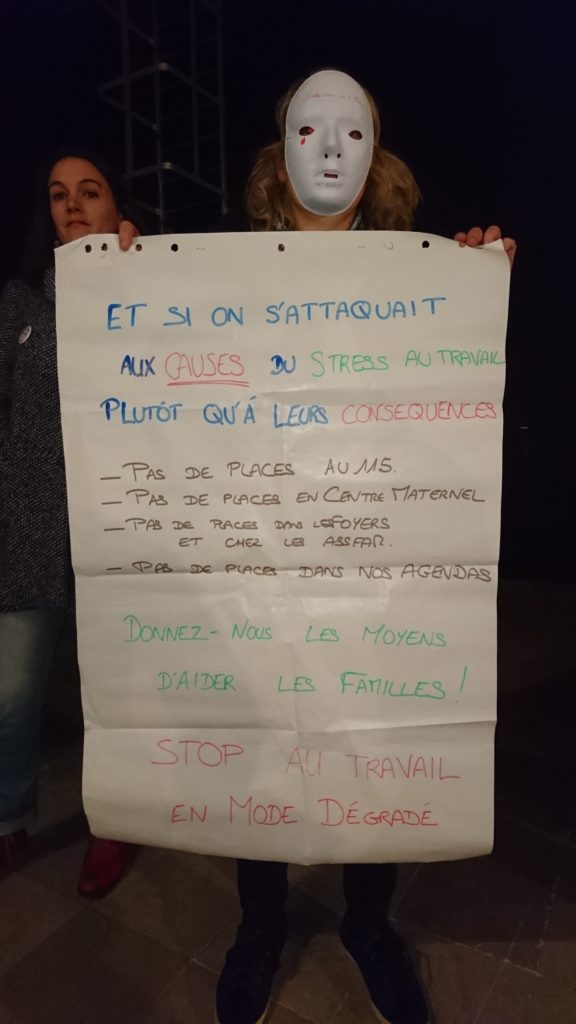 ET SI ON S'ATTAQUAIT
AUX CAUSES DU STRESS AU TRAVAIL
PLUTÔT QU'À LEURS CONSEQUENCES
— PAS DE PLACES AU 115.
— PAS DE PLACES EN CENTRE MATERNEL
— PAS DE PLACES DANS LES FOYERS
ET CHEZ LES ASSFAM.
— PAS DE PLACES DANS NOS AGENDAS
DONNEZ-NOUS LES MOYENS
D'AIDER LES FAMILLES !
STOP AU TRAVAIL
EN MODE DÉGRADÉ